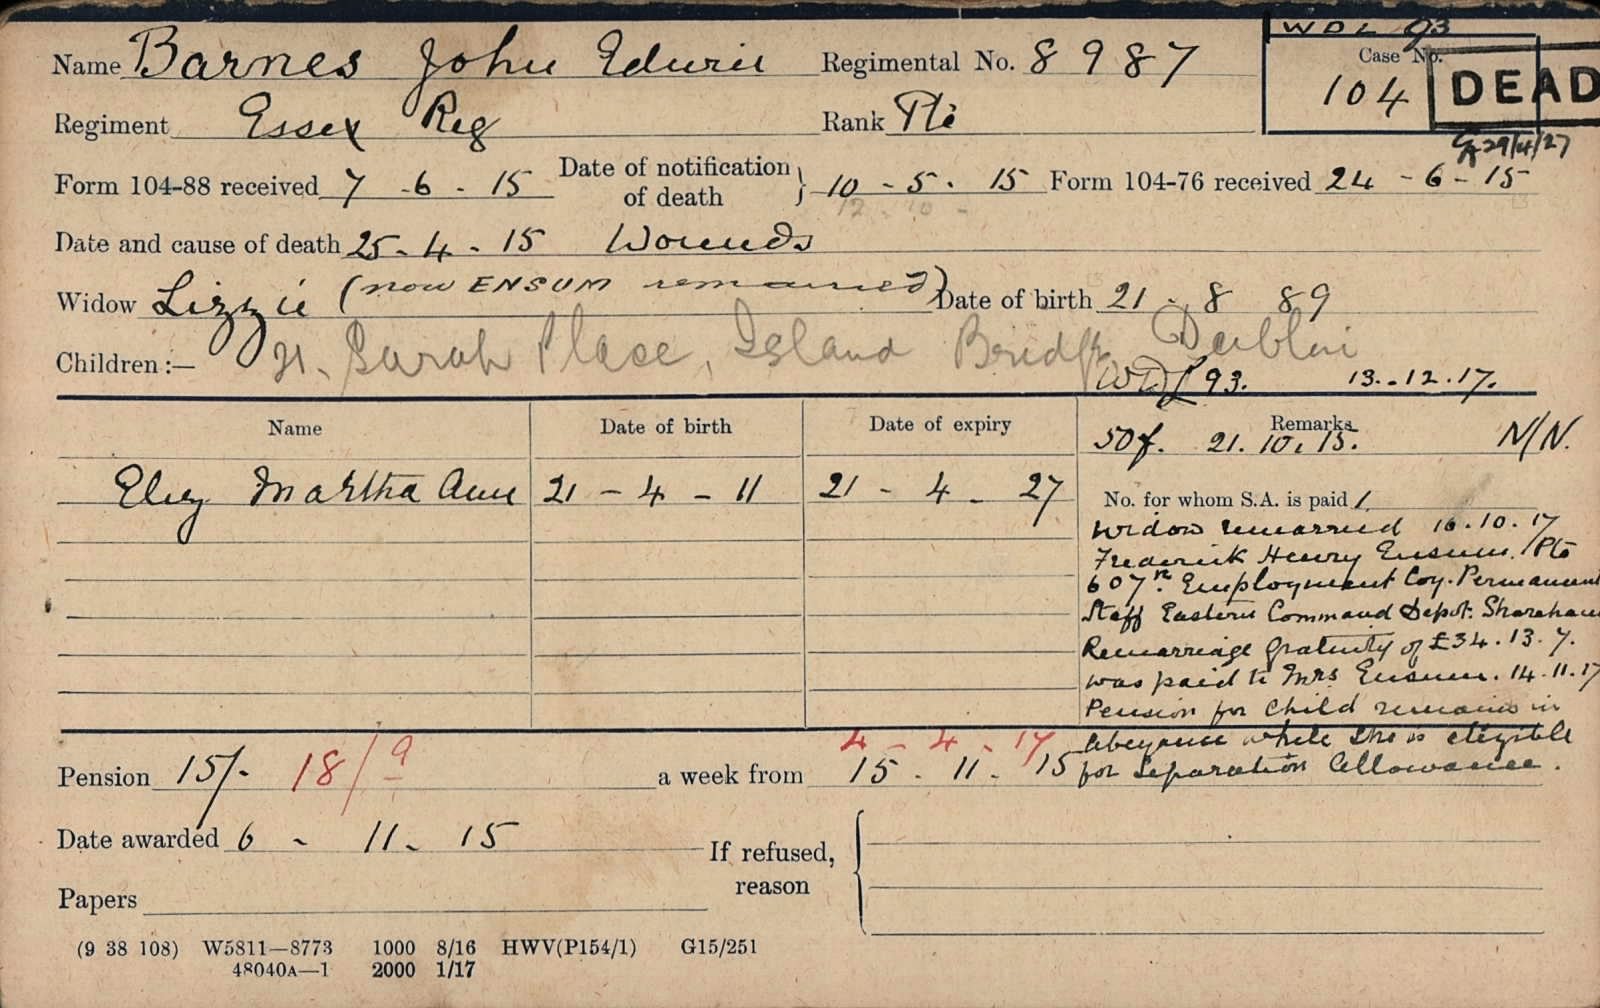 WDL 93
Name Barnes John Edwin Regimental No. 8987 Case No. 104 DEAD
Regiment Essex Reg Rank Pte
29/4/27
Form 104-88 received 7 - 6 - 15 Date of notification of death } 10 - 5 - 15 Form 104-76 received 24 - 6 - 15
12 - 10 -
Date and cause of death 25 - 4 - 15 Wounds
Widow Lizzie (now ENSUM remarried) Date of birth 21 - 8 89
Children :— 21, Sarah Place, Island Bridge, Dublin
WDL 93. 13.-12.17.
Name Date of birth Date of expiry Remarks
50f. 21.10.15. N/N.
Elizy Martha Ann 21 - 4 - 11 21 - 4 - 27
No. for whom S.A. is paid 1.
Widow remarried 16.10.17
Frederick Henry Ensum. Pte
607th Employment Coy. Permanent
Staff Eastern Command Depot. Shoreham
Remarriage gratuity of £34.13.7.
was paid to Mrs Ensum. 14.11.17
Pension for child remains in
abeyance while she is eligible
for Separation Allowance.
4 - 4 - 17
Pension 15/- 18/9 a week from 15 - 11 - 15
Date awarded 6 - 11 - 15
If refused, reason
Papers
(9 38 108) W5811—8773 1000 8/16 HWV(P154/1) G15/251
48040A—1 2000 1/17